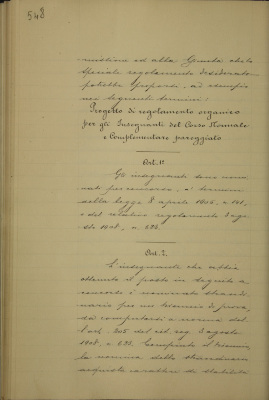 548
missione ed alla Giunta che lo
speciale regolamento desiderato
potrebbe proporsi, ad esempio
nei seguenti termini:
Progetto di regolamento organico
per gli Insegnanti del Corso Normale
e Complementare pareggiato
Art. 1º
Gli insegnanti sono nomi-
nati per concorso, a termini
della legge 8 aprile 1906, n. 141,
e del relativo regolamento 3 ago-
sto 1908, n. 623.
Art. 2.
L'insegnante che abbia
ottenuto il posto in seguito a
concorso è nominato straordi-
nario per un triennio di prova,
da computarsi a norma del-
l'art. 205 del cit. reg. 3 agosto
1908, n. 623. Compiuto il triennio,
la nomina dello straordinario
acquista carattere di stabilità